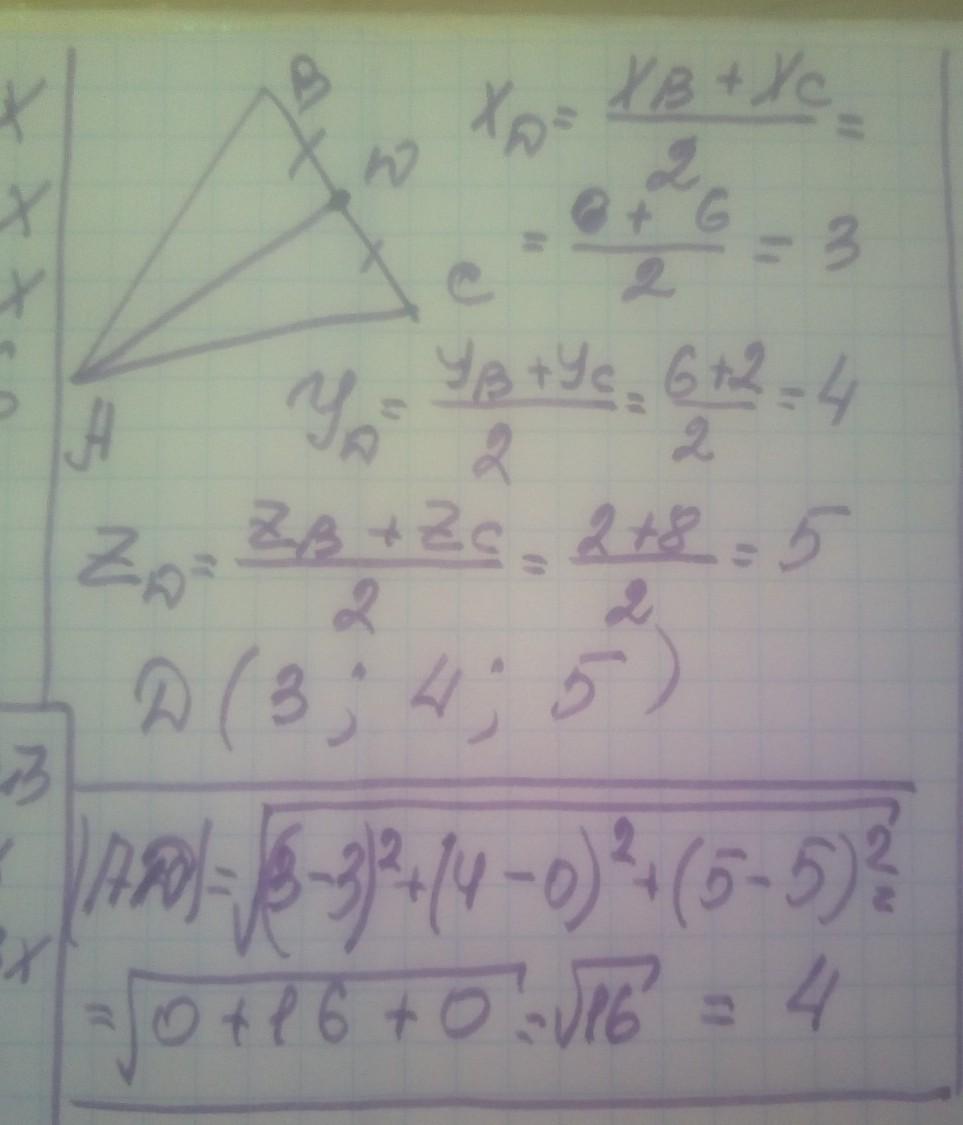 B
D
C
A
X_D = (X_B + X_C)/2 =
= (0 + 6)/2 = 3
y_D = (y_B + y_C)/2 = (6+2)/2 = 4
Z_D = (Z_B + Z_C)/2 = (2+8)/2 = 5
D (3; 4; 5)
|AD| = √((3-3)² + (4-0)² + (5-5)²) =
= √(0 + 16 + 0) = √16 = 4
x
x
x
B
x